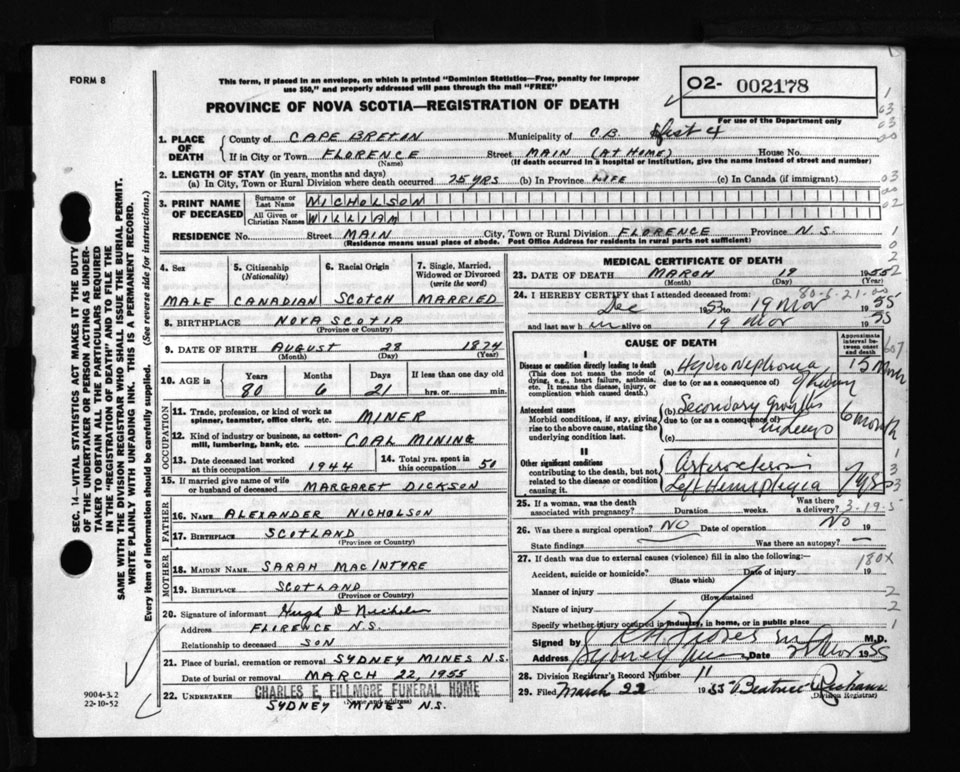 FORM 8
This form, if placed in an envelope, on which is printed "Dominion Statistics—Free, penalty for improper
use $50," and properly addressed will pass through the mail "FREE"
O2- 002178
For use of the Department only
PROVINCE OF NOVA SCOTIA—REGISTRATION OF DEATH
1. PLACE OF DEATH
County of CAPE BRETON Municipality of C.B. Dist 4
If in City or Town FLORENCE Street MAIN (AT HOME) House No.
(Name) (If death occurred in a hospital or institution, give the name instead of street and number)
2. LENGTH OF STAY (in years, months and days)
(a) In City, Town or Rural Division where death occurred 25 YRS (b) In Province LIFE (c) In Canada (if immigrant)
3. PRINT NAME OF DECEASED
Surname or Last Name NICHOLSON
All Given or Christian Names WILLIAM
RESIDENCE No. Street MAIN City, Town or Rural Division FLORENCE Province N.S.
(Residence means usual place of abode. Post Office Address for residents in rural parts not sufficient)
4. Sex MALE
5. Citizenship (Nationality) CANADIAN
6. Racial Origin SCOTCH
7. Single, Married, Widowed or Divorced (write the word) MARRIED
8. BIRTHPLACE NOVA SCOTIA
(Province or Country)
9. DATE OF BIRTH AUGUST 28 1874
(Month) (Day) (Year)
10. AGE in Years Months Days If less than one day old
80 6 21 hrs. or min.
OCCUPATION
11. Trade, profession, or kind of work as spinner, teamster, office clerk, etc. MINER
12. Kind of industry or business, as cotton-mill, lumbering, bank, etc. COAL MINING
13. Date deceased last worked at this occupation 1944
14. Total yrs. spent in this occupation 50
15. If married give name of wife or husband of deceased MARGARET DICKSON
FATHER
16. NAME ALEXANDER NICHOLSON
17. BIRTHPLACE SCOTLAND
(Province or Country)
MOTHER
18. MAIDEN NAME SARAH MACINTYRE
19. BIRTHPLACE SCOTLAND
(Province or Country)
20. Signature of informant Hugh D Nicholson
Address FLORENCE N.S.
Relationship to deceased SON
21. Place of burial, cremation or removal SYDNEY MINES N.S.
Date of burial or removal MARCH 22, 1955
22. UNDERTAKER CHARLES E. FILLMORE FUNERAL HOME
(Name and address)
SYDNEY MINES N.S.
MEDICAL CERTIFICATE OF DEATH
23. DATE OF DEATH MARCH 19 1955
(Month) (Day)
80-6-21
24. I HEREBY CERTIFY that I attended deceased from:
Dec 1953 to 19 Mar 1955
and last saw h im alive on 19 Mar 1955
CAUSE OF DEATH
Approximate interval between onset and death
I
Disease or condition directly leading to death
(This does not mean the mode of dying, e.g., heart failure, asthenia, etc. It means the disease, injury, or complication which caused death.)
(a) Hypernephroma of kidney 15 Month
due to (or as a consequence of)
Antecedent causes
Morbid conditions, if any, giving rise to the above cause, stating the underlying condition last.
(b) Secondary growths in lungs 6 month
due to (or as a consequence of)
(c)
II
Other significant conditions
contributing to the death, but not related to the disease or condition causing it.
Left Hemiplegia 7 yrs
25. If a woman, was the death associated with pregnancy? Duration weeks. Was there a delivery?
3-19-5
26. Was there a surgical operation? NO Date of operation NO 19
State findings Was there an autopsy? —
27. If death was due to external causes (violence) fill in also the following:—
180X
Accident, suicide or homicide? Date of injury 19
(State which)
Manner of injury
(How sustained)
Nature of injury
Specify whether injury occurred in industry, in home, or in public place
Signed by M.D.
Address Sydney Mines Date 21 Mar 1955
28. Division Registrar's Record Number 11
29. Filed March 22 1955 Beatrice
(Division Registrar)
SEC. 14—VITAL STATISTICS ACT MAKES IT THE DUTY
OF THE UNDERTAKER OR PERSON ACTING AS UNDER-
TAKER TO OBTAIN ALL THE PARTICULARS REQUIRED
IN THE "REGISTRATION OF DEATH" AND TO FILE THE
SAME WITH THE DIVISION REGISTRAR WHO SHALL ISSUE THE BURIAL PERMIT.
WRITE PLAINLY WITH UNFADING INK. THIS IS A PERMANENT RECORD.
Every item of information should be carefully supplied. (See reverse side for instructions.)
9004-3.2
22-10-52